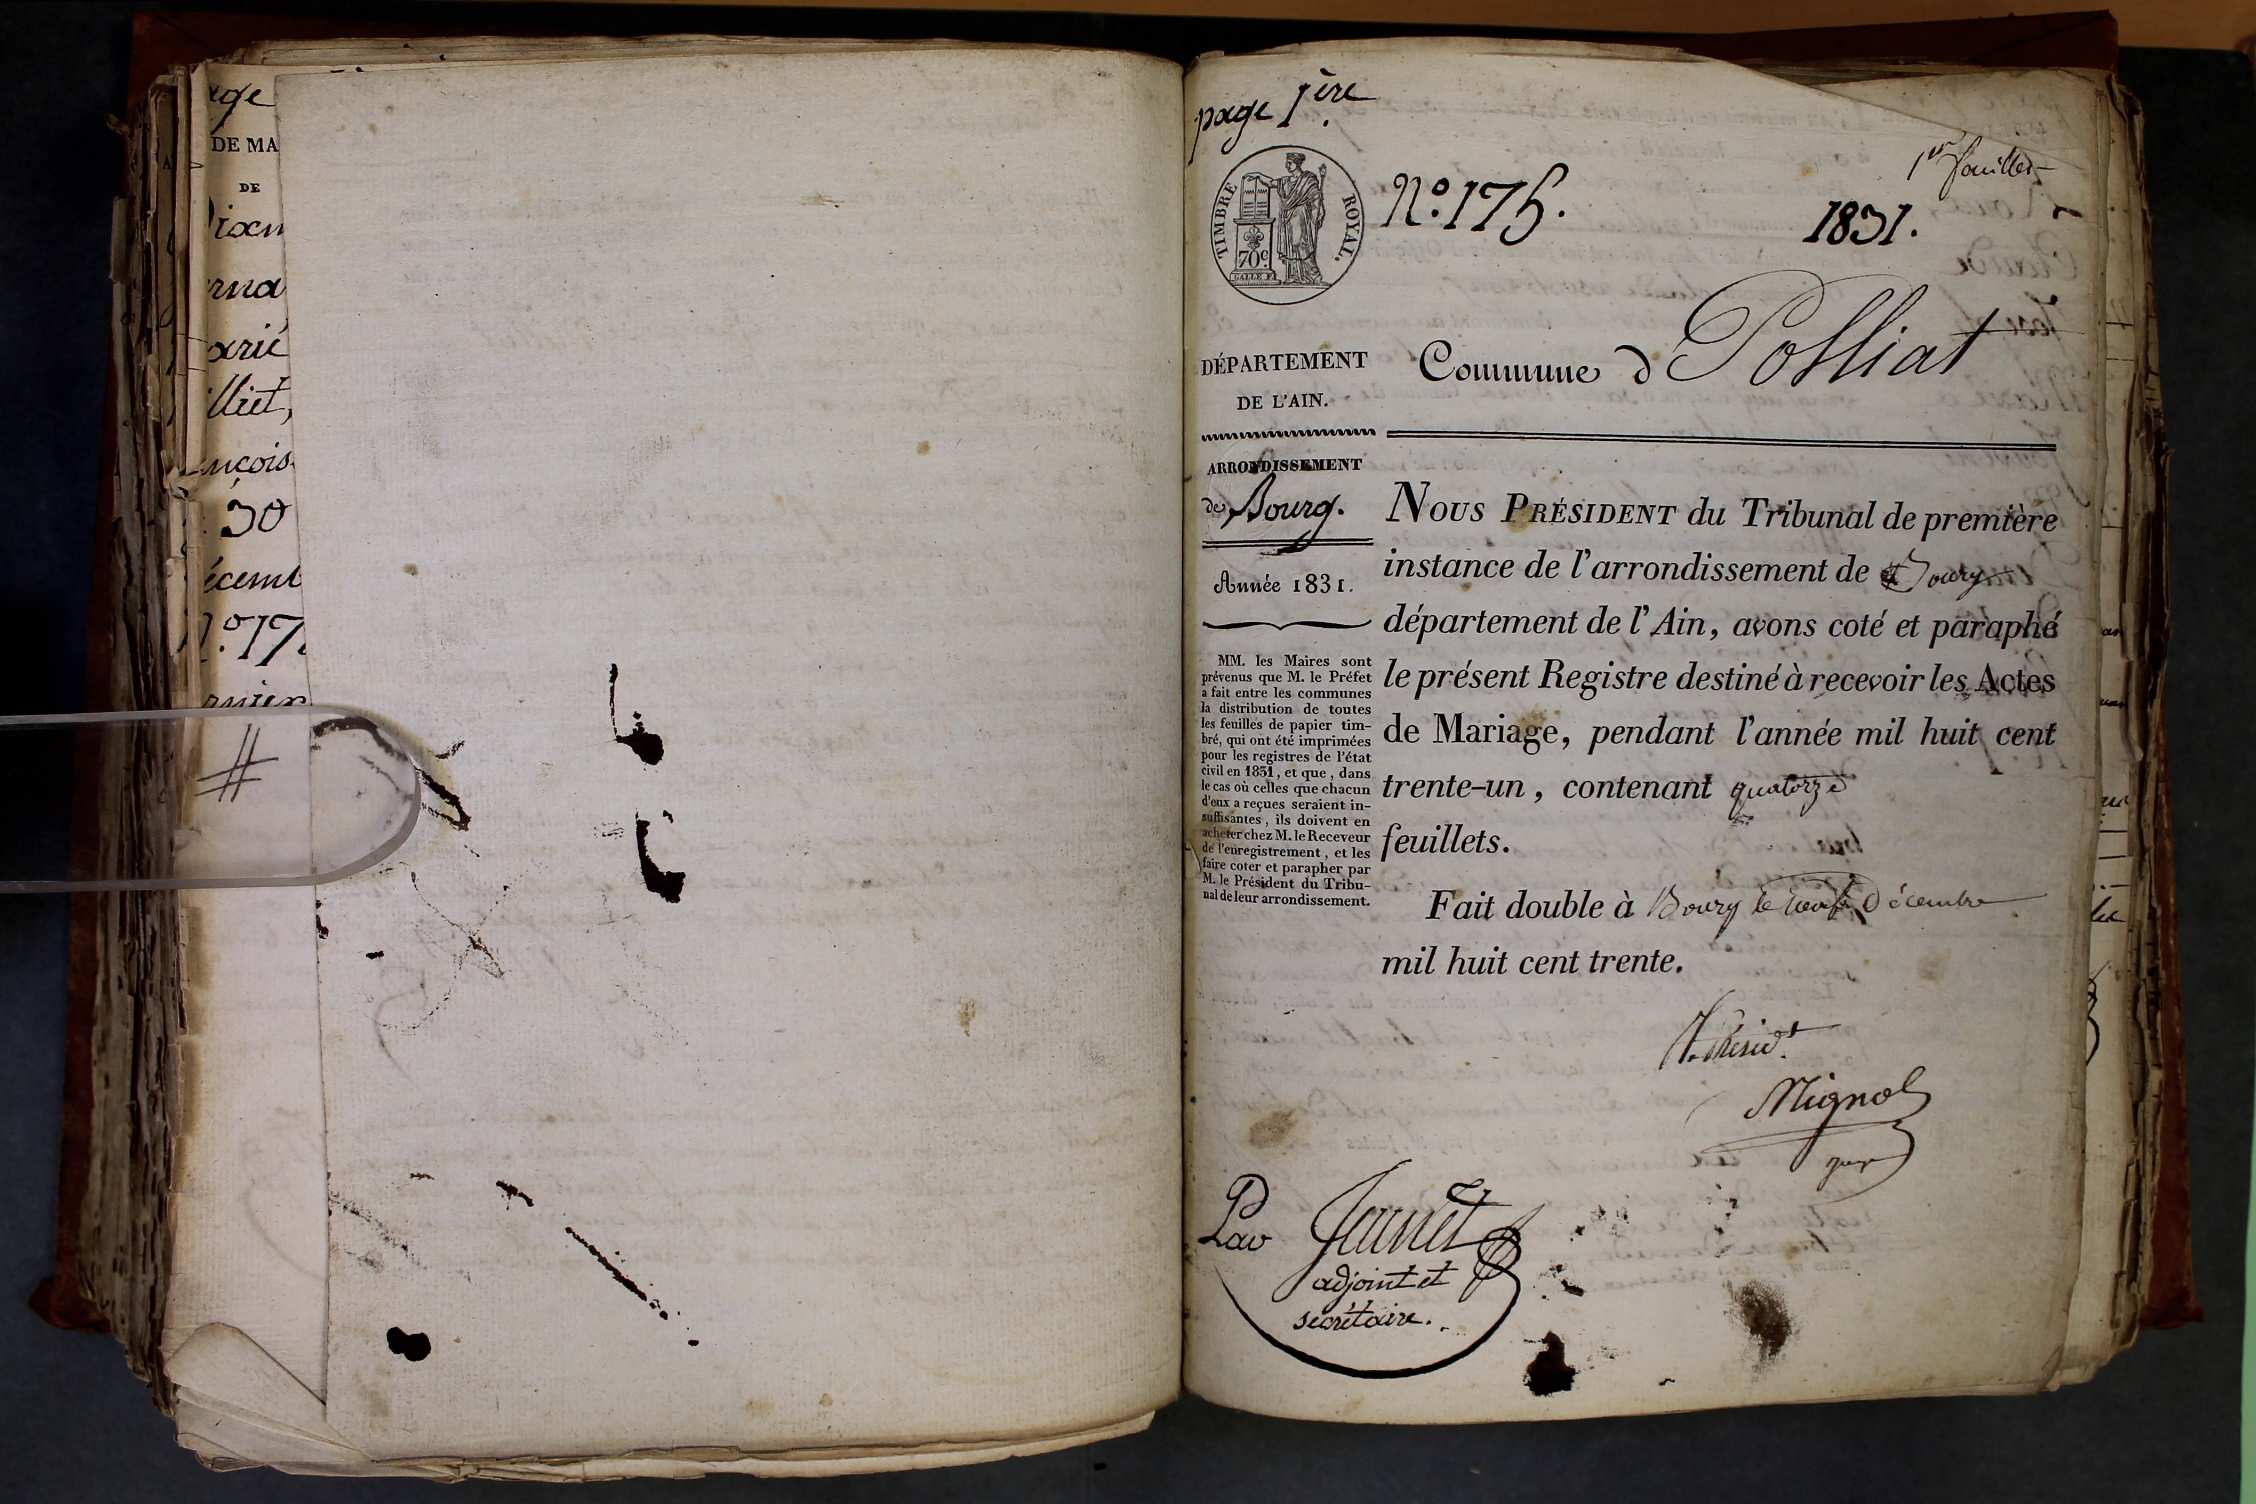 age
DE MA
DE
erna
arie
illiet,
ançois
30
écemb
N.º 17
ernier
#
page 1.ère
TIMBRE ROYAL.
70 c.
N.º 175.
1er feuillet
1831.
DÉPARTEMENT
DE L'AIN.
Commune d Polliat
ARRONDISSEMENT
de Bourg.
Année 1831.
MM. les Maires sont
prévenus que M. le Préfet
a fait entre les communes
la distribution de toutes
les feuilles de papier tim-
bré, qui ont été imprimées
pour les registres de l'état
civil en 1831, et que, dans
le cas où celles que chacun
d'eux a reçues seraient in-
suffisantes, ils doivent en
acheter chez M. le Receveur
de l'enregistrement, et les
faire coter et parapher par
M. le Président du Tribu-
nal de leur arrondissement.
NOUS PRÉSIDENT du Tribunal de première
instance de l'arrondissement de Bourg
département de l'Ain, avons coté et paraphé
le présent Registre destiné à recevoir les Actes
de Mariage, pendant l'année mil huit cent
trente-un, contenant quatorze
feuillets.
Fait double à Bourg le neuf Décembre
mil huit cent trente.
Présidt.
Mignot
Par Jaunet
adjoint et
secrétaire.